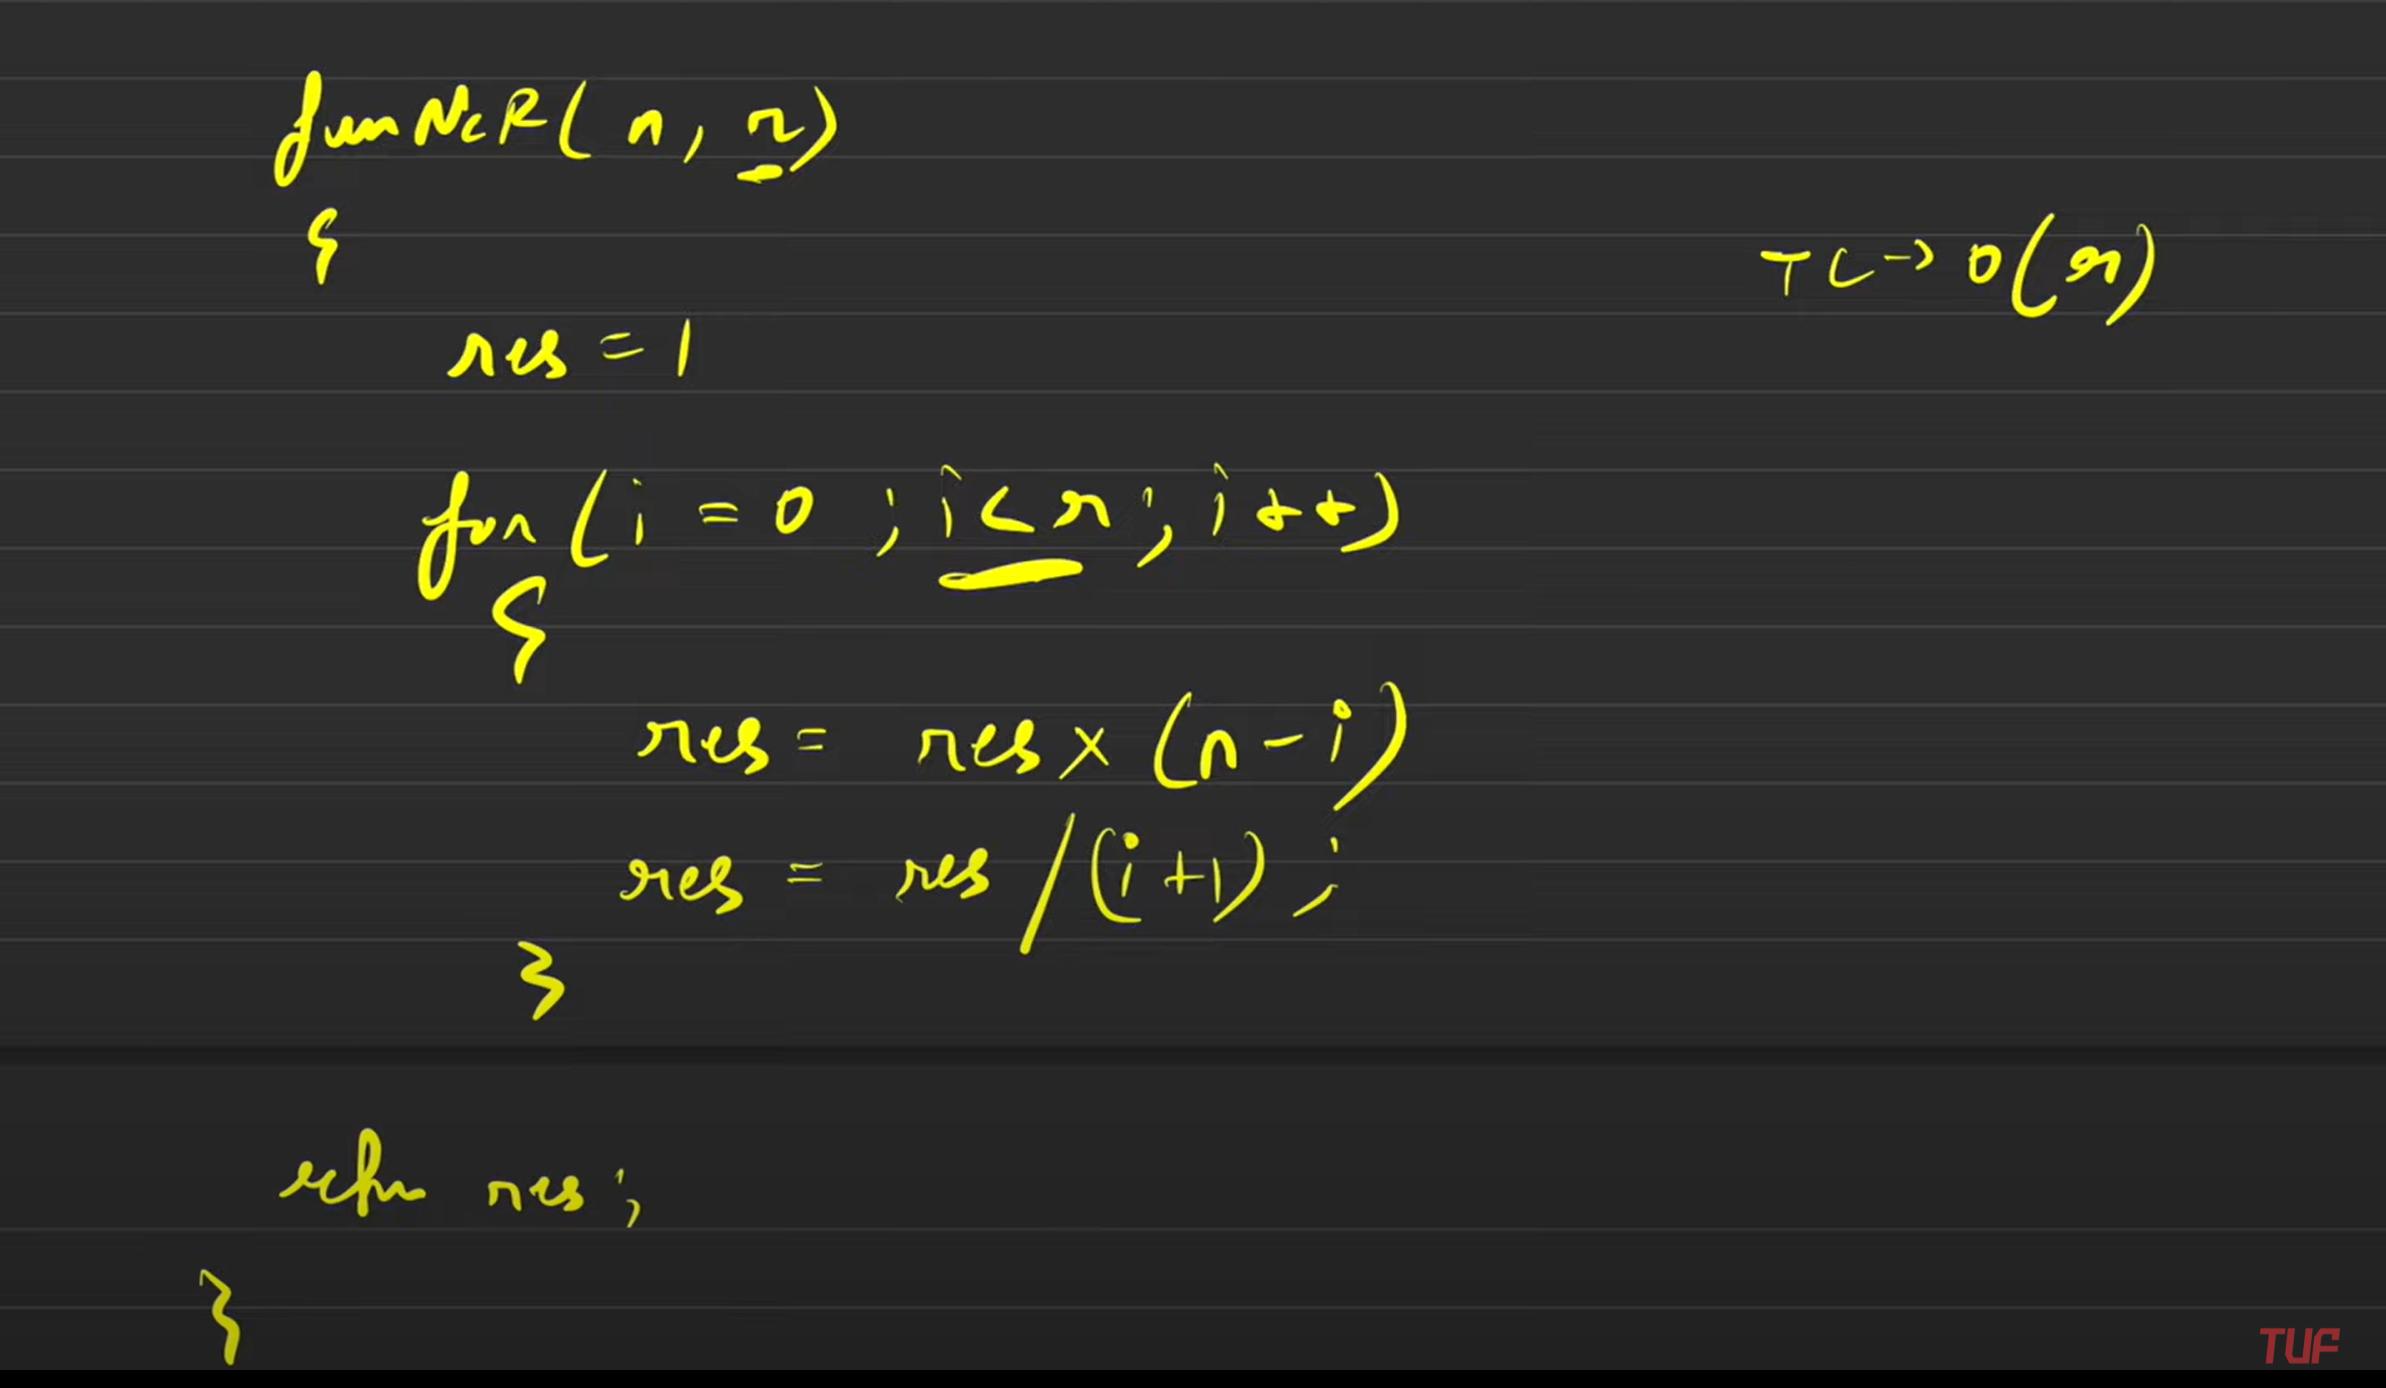 fun NcR(n, r)
{
TC → O(r)
res = 1
for(i = 0 ; i < r ; i++)
{
res = res x (n - i)
res = res / (i + 1) ;
}
return res ;
}
TUF